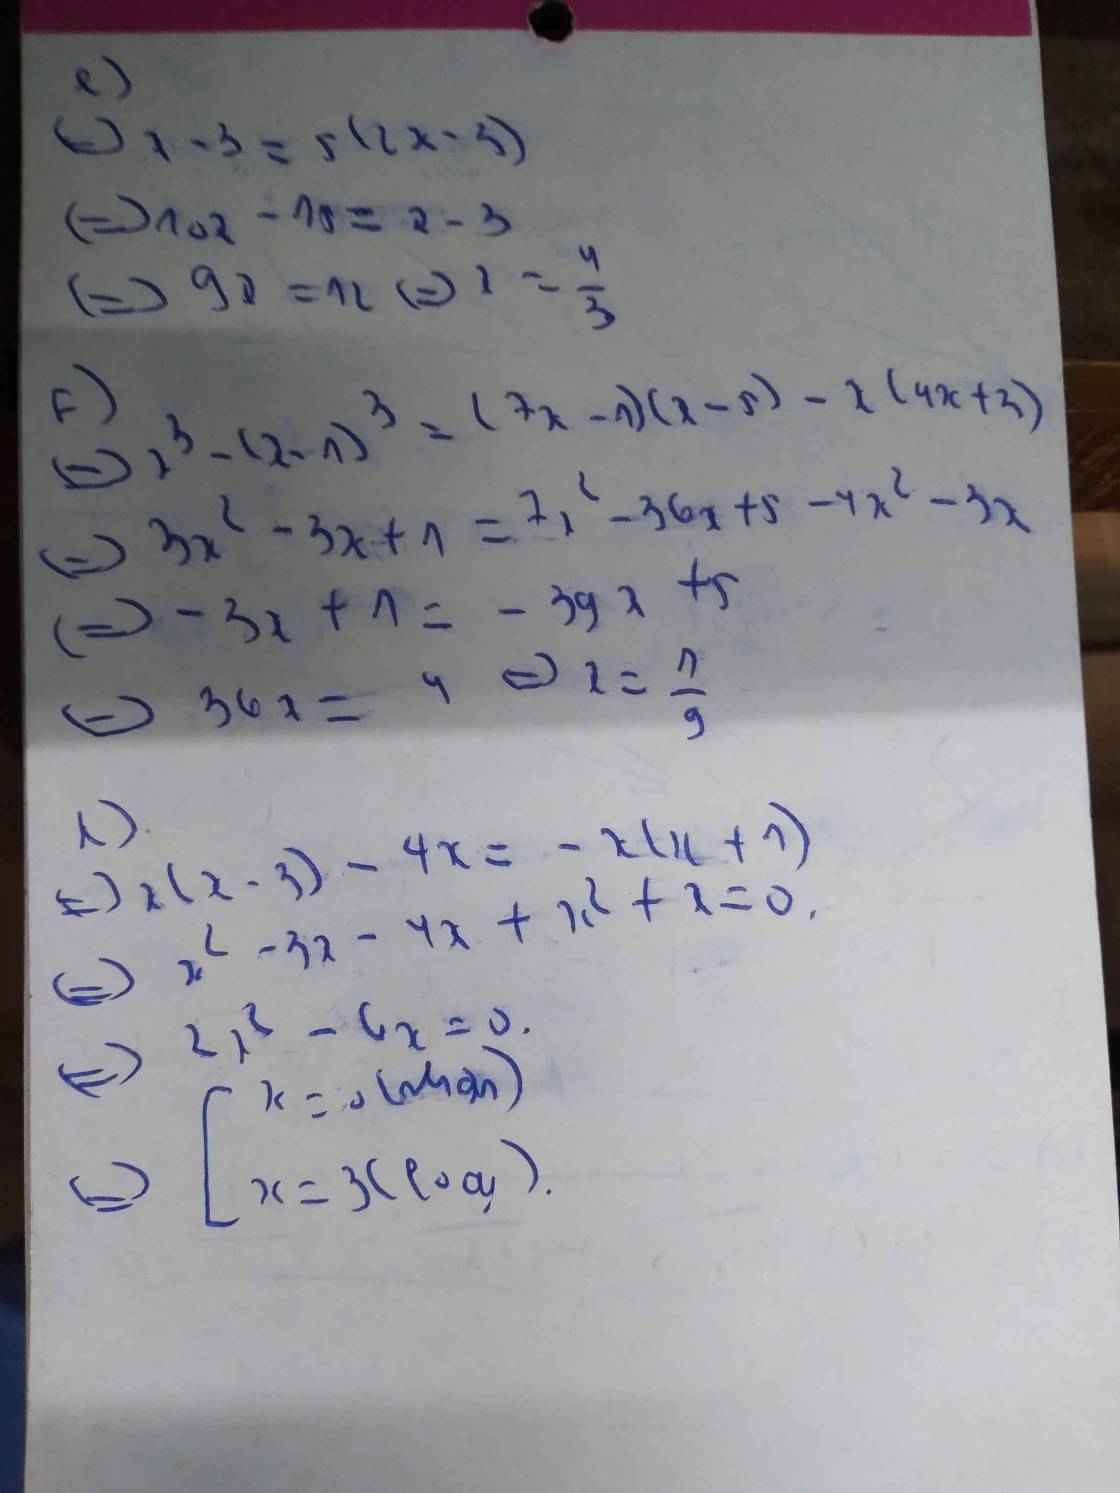 e)
(=) x - 3 = 5(2x - 3)
(=) 10x - 15 = x - 3
(=) 9x = 12 (=) x = 4/3
F)
(=) x³ - (x - 1)³ = (7x - 1)(x - 5) - x(4x + 3)
(=) 3x² - 3x + 1 = 7x² - 36x + 5 - 4x² - 3x
(=) - 3x + 1 = - 39x + 5
(=) 36x = 4 (=) x = 1/9
h)
(=) x(x - 3) - 4x = - x(x + 1)
(=) x² - 3x - 4x + x² + x = 0.
(=) 2x² - 6x = 0.
(=) [ x = 0 (nhận)
x = 3 (loại).